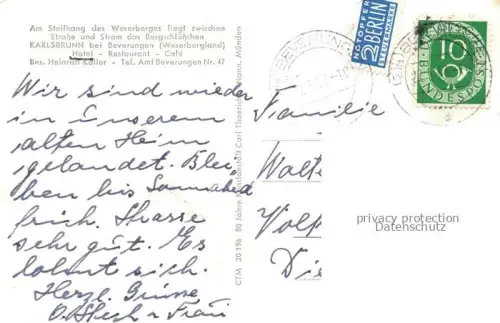 Am Steilhang des Weserberges liegt zwischen
Straße und Strom das Bergschlößchen
KARLSBRUNN bei Beverungen (Weserbergland)
Hotel - Restaurant - Café
Bes. Heinrich Koller - Tel. Amt Beverungen Nr. 47
Wir sind wieder
in unserem
alten Heim
gelandet. Blei-
ben bis Sonnabend
früh. Strasse
sehr gut. Es
lohnt sich.
Herzl. Grüsse
Frau
CTM 80 Jahre Kunstanstalt Carl Thoericht, Hann. Münden
BEVERUNGEN
NOTOPFER
2 BERLIN
STEUERMARKE
10
DEUTSCHE
BUNDESPOST
Familie
privacy protection
Datenschutz